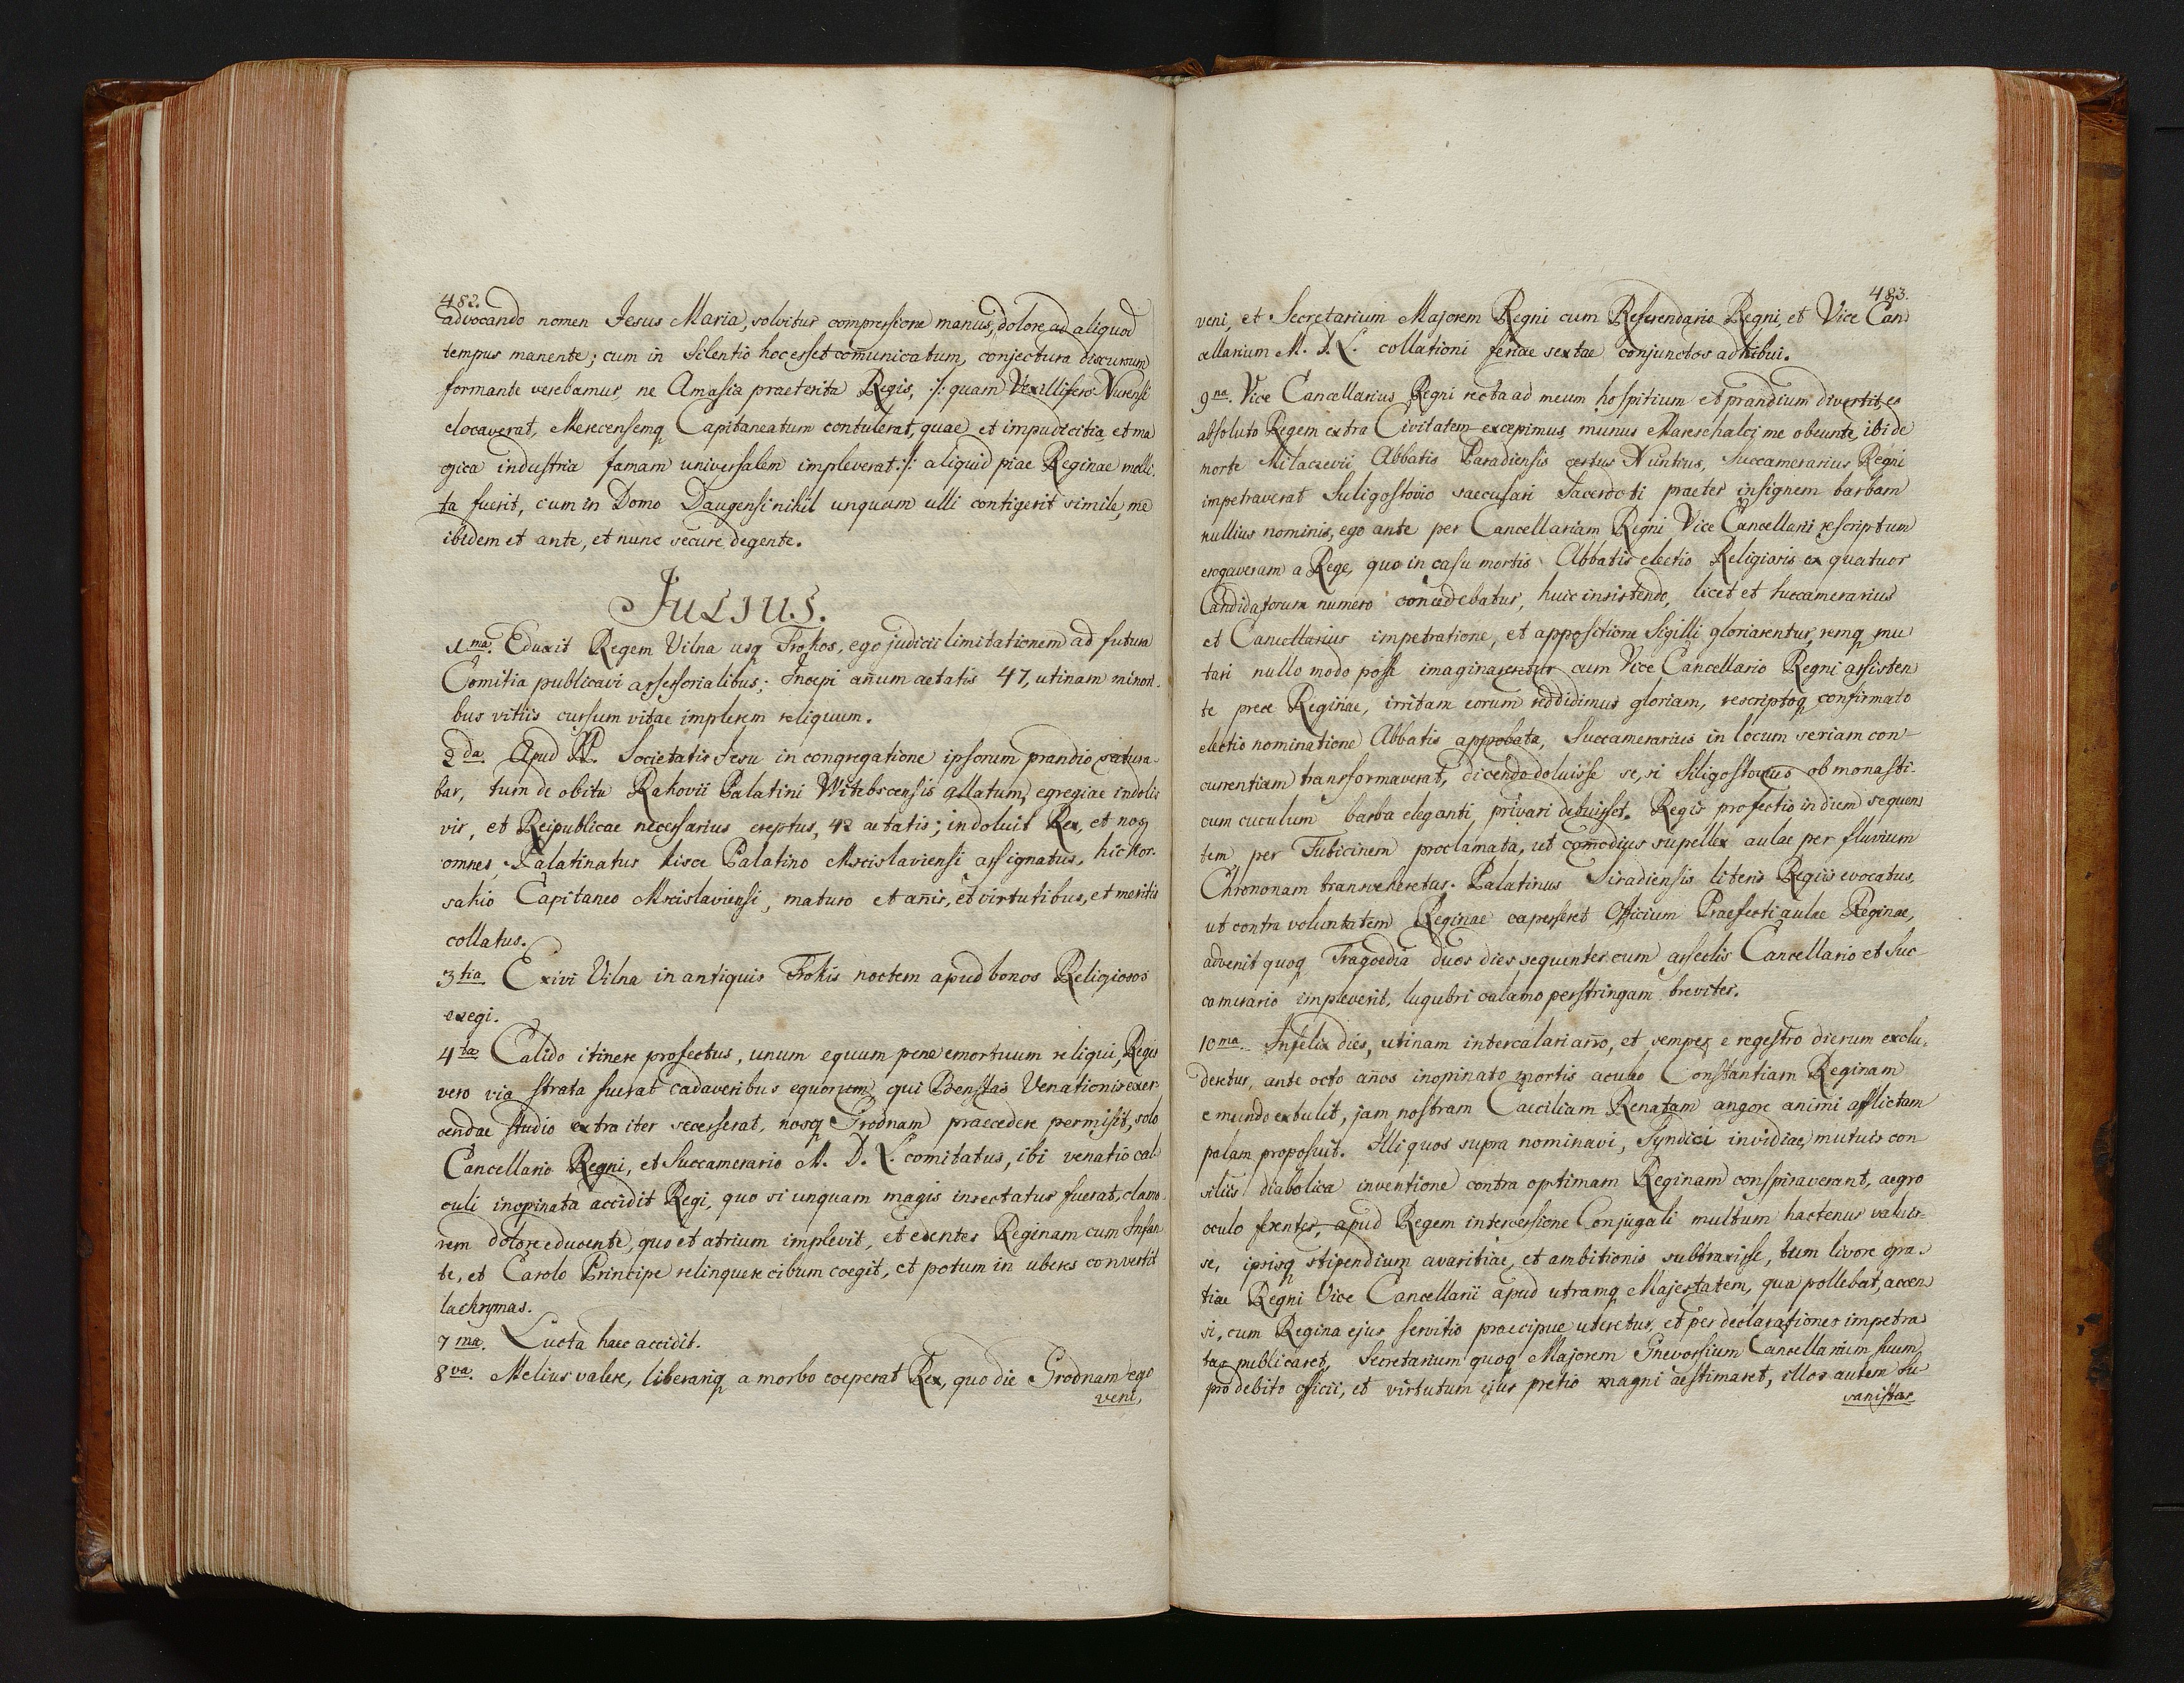 482.
advocando nomen Jesus Maria, solvitur compressione manus, dolore ad aliquod
tempus manente; cum in silentio hoc esset com̄unicatum, conjectura discursum
formante verebamur, ne Amasia praeterita Regis, :/: quam Vexillifero Nurensi
elocaverat, Merecensemq Capitaneatum contulerat, quae et impudicitia, et ma
gica industria famam universalem impleverat :/: aliquid piae Reginae molli-
ta fuerit, cum in Domo Daugensi nihil unquam ulli contigerit simile, me
ibidem et ante, et nunc secure degente.
JULIUS.
1ma. Eduxit Regem Vilna usq Trokos, ego judicii limitationem ad futura
Comitia publicavi assessorialibus; Incepi an̄um aetatis 47, utinam minori-
bus vitiis cursum vitae implerem reliquum.
2da. Apud PP. Societatis Jesu in congregatione ipsorum prandio satura-
bar, tum de obitu Rakovii Palatini Witebscensis allatum, egregiae indolis
vir, et Reipublicae necessarius ereptus, 42 aetatis; indoluit Rex, et nos
omnes, Palatinatus hisce Palatino Mscislaviensi assignatus, hic Kor-
sakio Capitaneo Mscislaviensi, maturo et an̄is, et virtutibus, et meritis
collatus.
3tia Exivi Vilna in antiquis Trokis noctem apud bonos Religiosos
exegi.
4ta Calido itinere profectus, unum equum pene emortuum reliqui, Regis
vero via strata fuerat cadaveribus equorum, qui Berstas Venationis exer-
cendae studio extra iter secesserat, nosq Grodnam praecedere permisit, solo
Cancellario Regni, et Succamerario M. D. L. comitatus, ibi venatio cal-
culi inopinata accidit Regi, quo si unquam magis insectatus fuerat, clamo-
rem dolore educente, quo et atrium implevit, et edentes Reginam cum Infan-
te, et Carolo Principe relinquere cibum coegit, et potum in uberes convertit
lachrymas.
7ma. Lucta haec accidit.
8va. Melius valere, liberariq a morbo coeperat Rex, quo die Grodnam ego
veni,
483.
veni, et Secretarium Majorem Regni cum Referendario Regni, et Vice Can
cellarium M. D. L. collationi feriae sextae conjunctos adhibui.
9na. Vice Cancellarius Regni recta ad meum hospitium et prandium divertit, eo
absoluto Regem extra Civitatem excepimus, munus Mareschalci me obeunte, ibi de
morte Milaczevii Abbatis Paradiensis certus Nuntius, Succamerarius Regni
impetraverat Suligostovio saeculari Sacerdoti praeter insignem barbam
nullius nominis, ego ante per Cancellariam Regni Vice Cancellarii rescriptum
erogaveram a Rege, quo in casu mortis Abbatis electio Religiosis ex quatuor
Candidatorum numero concedebatur, huic insistendo, licet et Succamerarius
et Cancellarius impetratione, et appositione Sigilli gloriarentur, remq mu
tari nullo modo posse imaginarentur cum Vice Cancellario Regni assisten
te prece Reginae, irritam eorum reddidimus gloriam, rescriptoq confirmato
electio nominatione Abbatis approbata, Succamerarius in locum seriam con-
currentiam transformaverat, dicendo doluisse se, si Siligostovius ob monasti-
cum cuculum barba eleganti, privari debuisset. Regis profectio in diem sequen
tem per Tubicinem proclamata, ut com̄odius supellex aulae per fluvium
Chrononam transveheretur. Palatinus Siradiensis literis Regiis evocatus,
ut contra voluntatem Reginae capesseret Officium Praefecti aulae Reginae,
advenit quoq Tragoedia duos dies sequentes cum asseclis Cancellario et Suc-
camerario impleverit, lugubri calamo perstringam breviter.
10ma. Infelix dies, utinam intercalari an̄o, et semper e regestro dierum exclu-
deretur, ante octo an̄os inopinato mortis aculeo Constantiam Reginam
e mundo extulit, jam nostram Caeciliam Renatam angore animi afflictam
palam proposuit. Illi quos supra nominavi, Syndici invidiae, mutuis con
siliis diabolica inventione contra optimam Reginam conspiraverant, aegro
oculo ferentes, apud Regem intercessione Conjugali multum hactenus valuis-
se, ipsisq stipendium avaritiae, et ambitionis subtraxisse, tum livore gra-
tiae Regni Vice Cancellarii apud utramq Majestatem, qua pollebat, accen
si, cum Regina ejus servitio praecipue uteretur, et per declarationes impetra
tas publicaret, Secretarium quoq Majorem Gnevossium Cancellarium suum,
pro debito officii, et virtutum ejus pretio magni aestimaret, illos autem Su-
sanistas